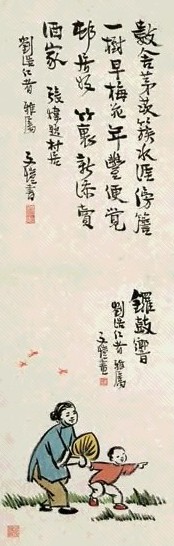 數舍茅茨簇水涯傍簷
一樹早梅花年豐便覺
邨居好竹裏新添賣
酒家 張煒題村居
劉浩仁者雅屬
子愷書
鑼鼓響
劉浩仁者雅屬
子愷畫